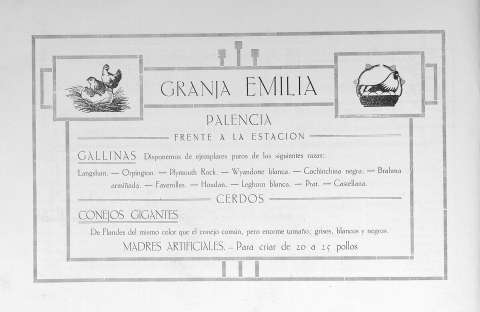 GRANJA EMILIA
PALENCIA
FRENTE A LA ESTACION
GALLINAS Disponemos de ejemplares puros de las siguientes razas:
Langsham. — Orpington — Plymouth Rock. — Wyandotte blanca. — Cochinchina negra. — Brahma
armiñada. — Faverolles. — Houdan. — Leghorn blanca. — Prat. — Castellana.
CERDOS
CONEJOS GIGANTES
De Flandes del mismo color que el conejo común, pero enorme tamaño; grises, blancos y negros.
MADRES ARTIFICIALES. – Para criar de 20 a 25 pollos